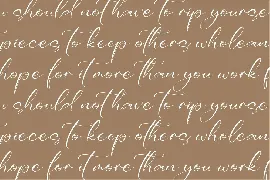 u should not have to rip yourse
pieces to keep others whole an
hope for it more than you work f
u should not have to rip yourse
pieces to keep others whole an
hope for it more than you work f